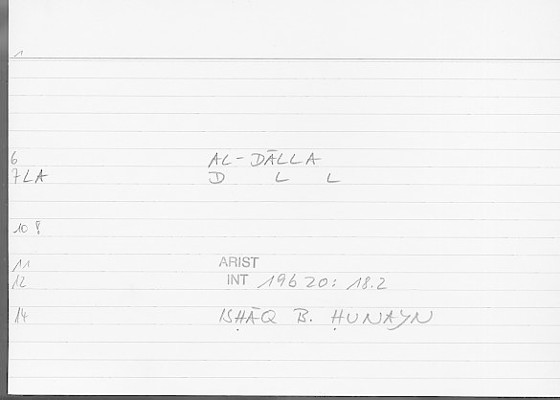 1
6 AL-DĀLLA
7LA D L L
10 8
11 ARIST
12 INT 196 20: 18.2
14 ISḤĀQ B. ḤUNAYN